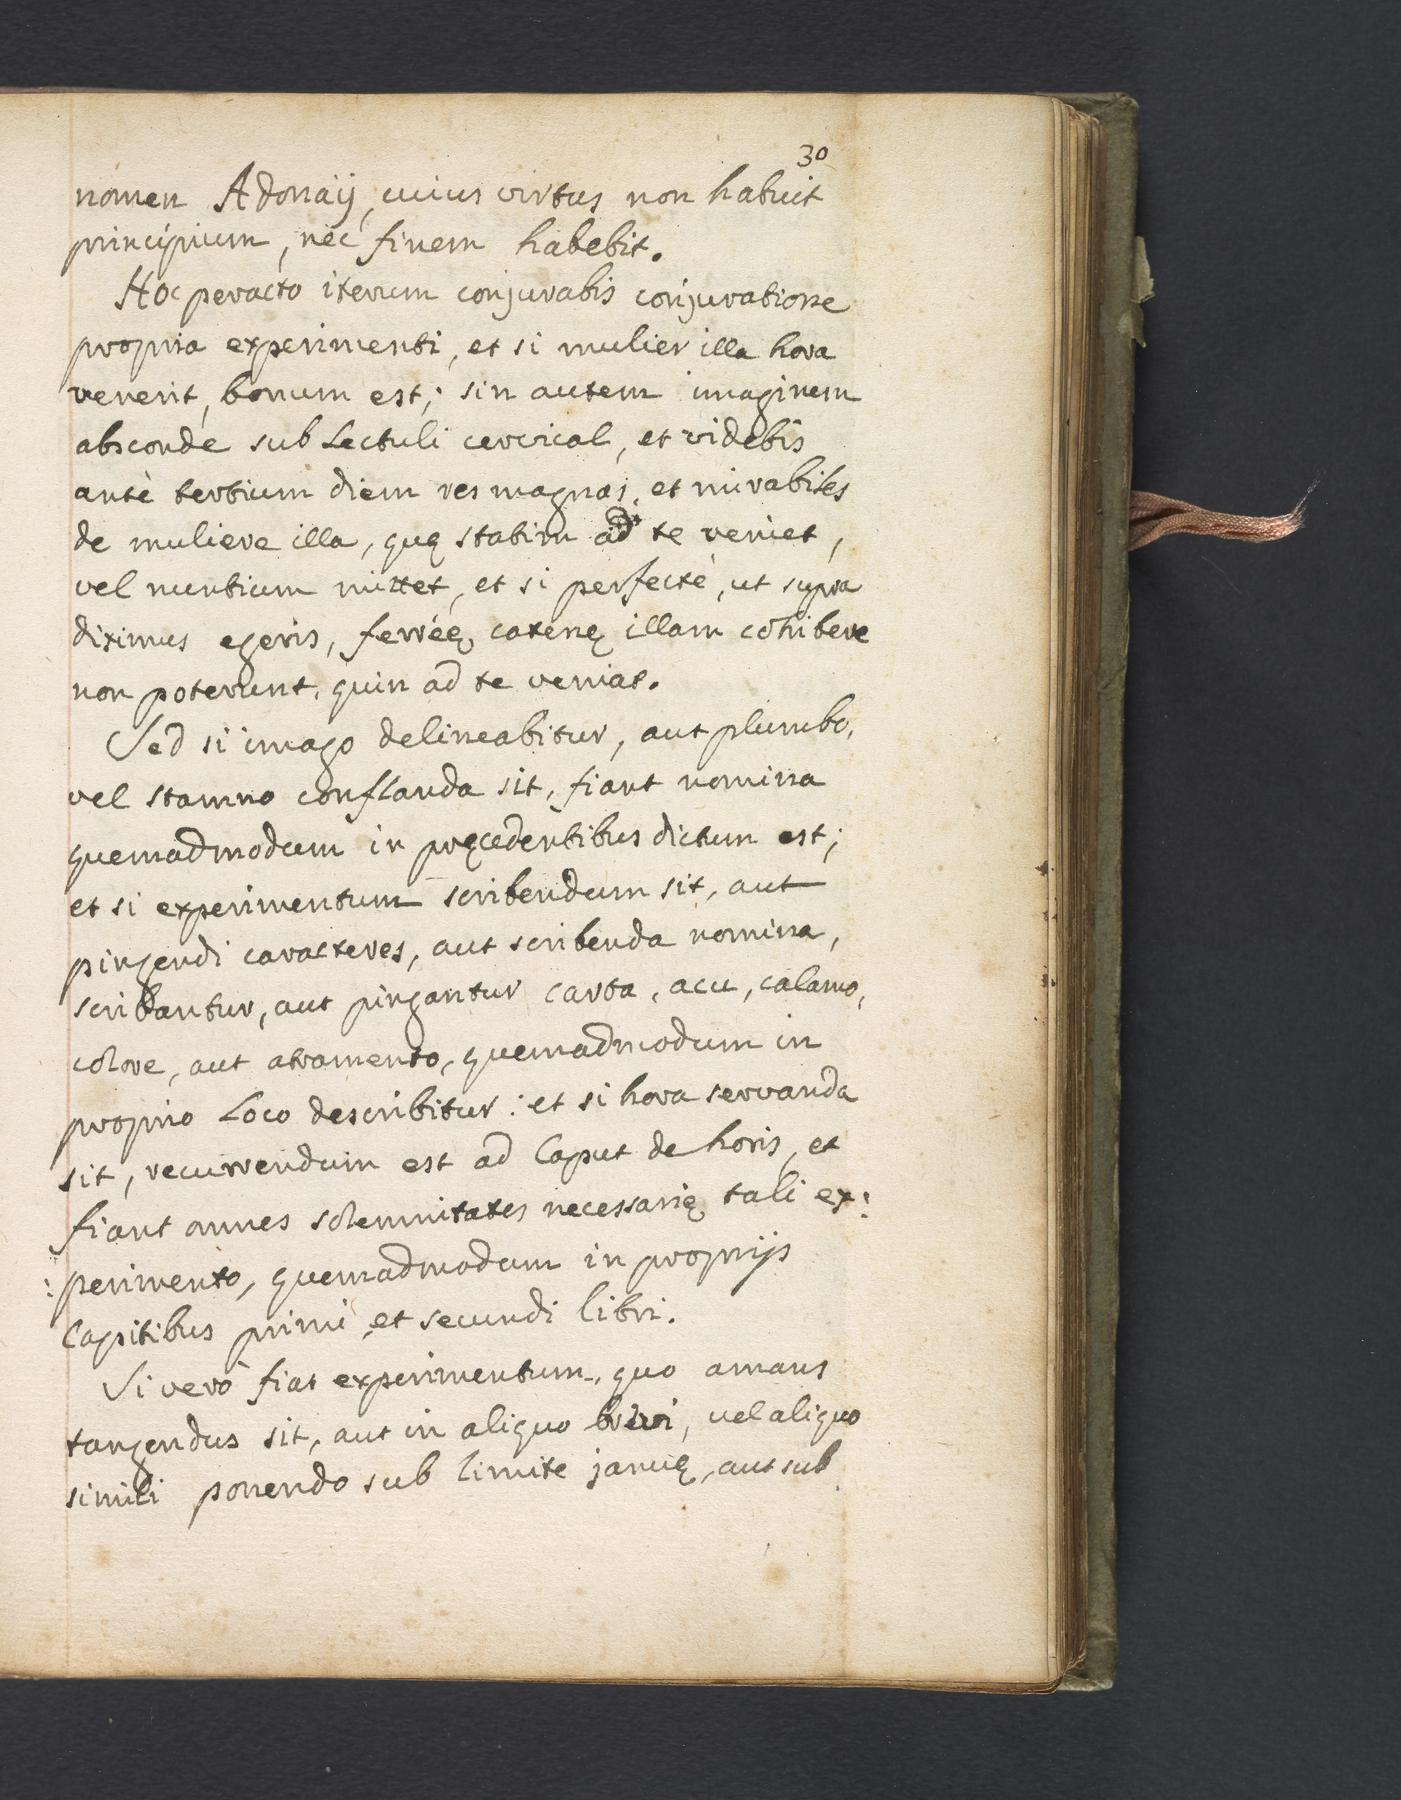 30
nomen Adonaÿ, cuius virtus non habuit
principium, nec finem habebit.
Hoc peracto iterum conjurabis conjuratione
propria experimenti, et si mulier illa hora
venerit, bonum est; sin autem imaginem
absconde sub Lectuli cervical, et videbis
antè tertium diem res magnas, et mirabiles
de muliere illa, quę statim ad te veniet,
vel nuntium mittet, et si perfectè, ut supra
diximus egeris, ferréę catenę illam cohibere
non poterunt, quin ad te veniat.
Sed si imago delineabitur, aut plumbo,
vel stamno conflanda sit, fiant nomina
quemadmodum in pręcedentibus dictum est;
et si experimentum scribendum sit, aut
pingendi caracteres, aut scribenda nomina,
scribantur, aut pingantur carta, acu, calamo,
colore, aut atramento, quemadmodum in
proprio Loco describitur: et si hora servanda
sit, recurrendum est ad Caput de horis, et
fiant omnes solemnitates necessarię tali ex:
:perimento, quemadmodum in proprijs
Capitibus primi et secundi libri.
Si verò fiat experimentum, quo amans
tangendus sit, aut in aliquo brevi, vel aliquo
simili ponendo sub limite januę, aut sub